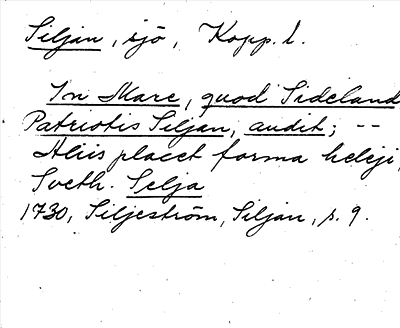 Siljan, sjö, Kopp. l.
In Mare, quod Sideland
Patriotis Siljan, audit; --
Aliis placet forma heleji,
Sveth. Selja
1730, Siljeström, Siljan, s. 9.